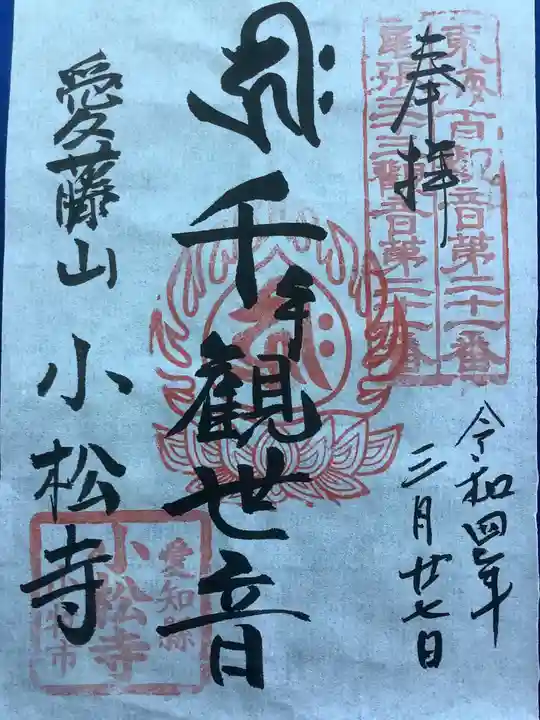 奉拝
東海百観音第二十一番
尾張三三観音第二十一番
令和四年
三月廿七日
千手観世音
愛藤山 小松寺
愛知縣
小松寺
小牧市